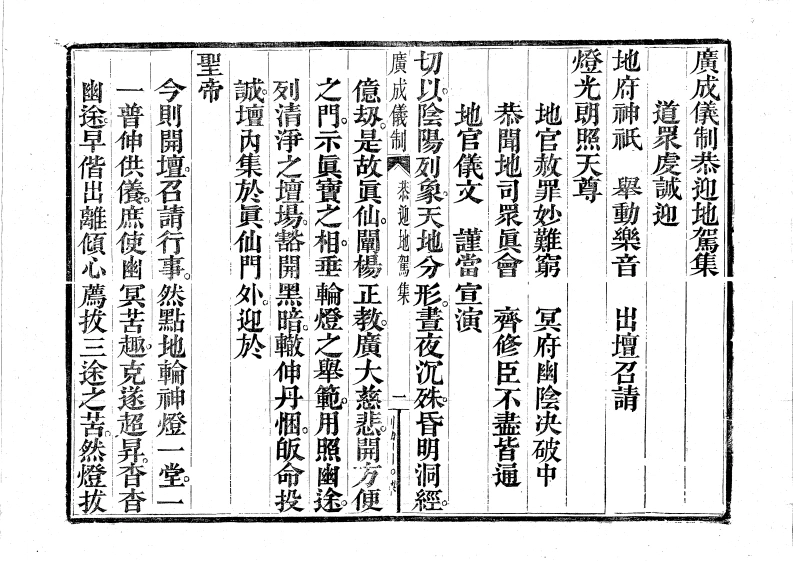 廣成儀制恭迎地駕集
道眾虔誠迎
地府神祇　舉動樂音　出壇召請
燈光朗照天尊
地官赦罪妙難窮　冥府幽陰決破中
恭聞地司眾眞會　齊修臣不盡皆通
地官儀文　謹當宣演
切以陰陽列象。天地分形。晝夜沉殊。昏明洞經。
廣成儀制　恭迎地駕集　一
億刼。是故眞仙闡楊正教。廣大慈悲。開方便
之門。示眞寶之相。垂輪燈之舉範。用照幽途。
列清淨之壇場。豁開黑暗。轍伸丹悃。皈命投
誠。壇內集於眞仙門外。迎於
聖帝
今則開壇。召請行事。然點地輪神燈一堂。一
一普伸供儀。庶使幽冥苦趣。克遂超昇。杳杳
幽途。早偕出離傾心薦拔三途之苦。然燈拔